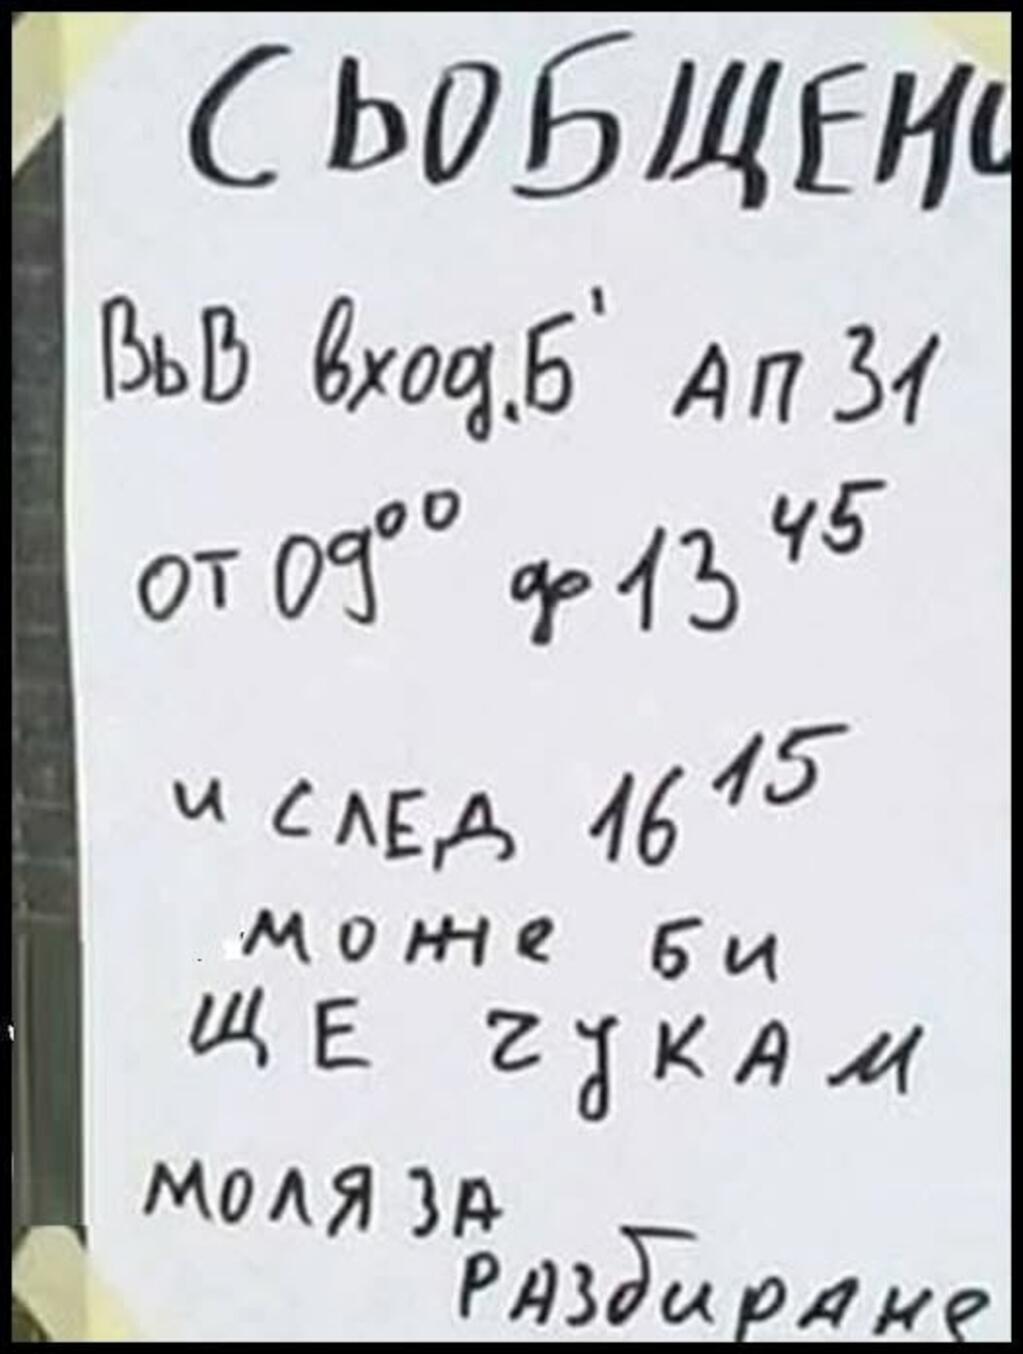 СЬОБЩЕНИ
ВЬВ вход.Б' АП 31
ОТ 09⁰⁰ до 13⁴⁵
и СЛЕД 16¹⁵
може би
ЩЕ ЧУКАМ
МОЛЯ ЗА
РАЗбиРАНе